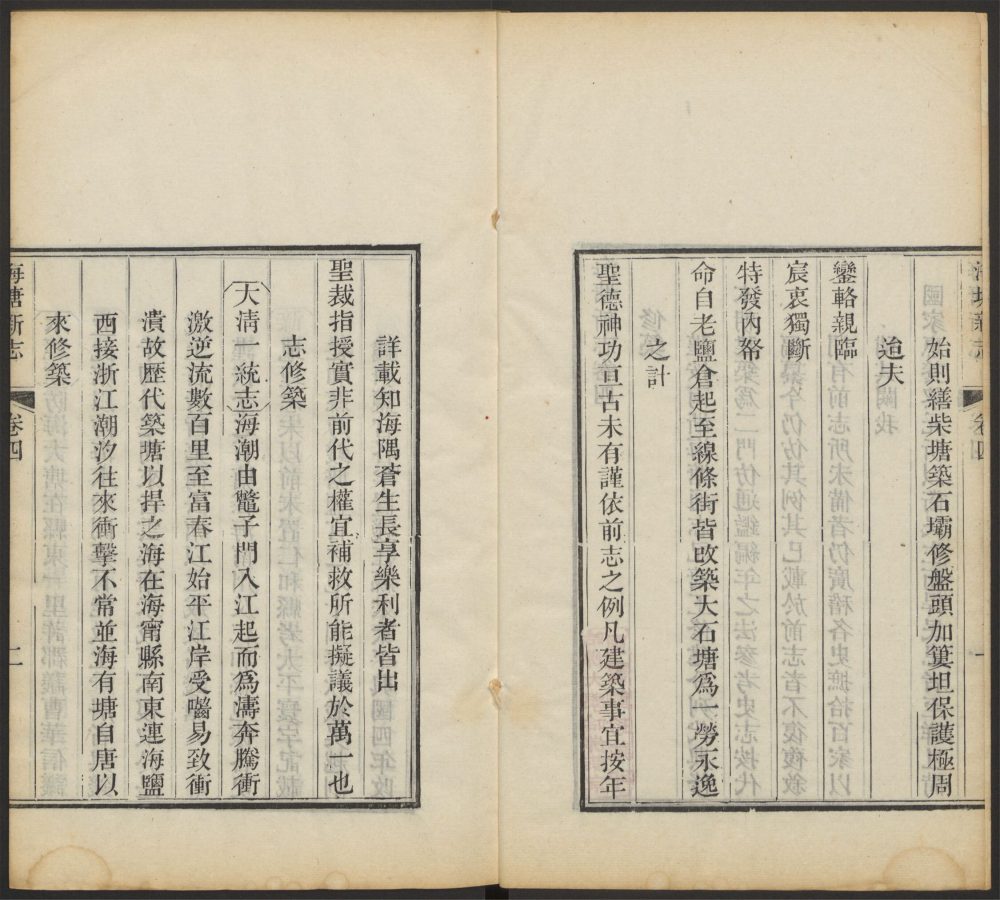 始則繕柴塘築石壩修盤頭加簍坦保護極周
迨夫
鑾輅親臨
宸衷獨斷
特發內帑
命自老鹽倉起至線條街皆改築大石塘爲一勞永逸
之計
聖德神功亘古未有謹依前志之例凡建築事宜按年
詳載知海隅蒼生長享樂利者皆出
聖裁指授實非前代之權宜補救所能擬議於萬一也
志修築
大清一統志海潮由鼈子門入江起而爲濤奔騰衝
激逆流數百里至富春江始平江岸受囓易致衝
潰故歷代築塘以捍之海在海甯縣南東連海鹽
西接浙江潮汐往來衝擊不常並海有塘自唐以
來修築
海塘新志 卷四 二